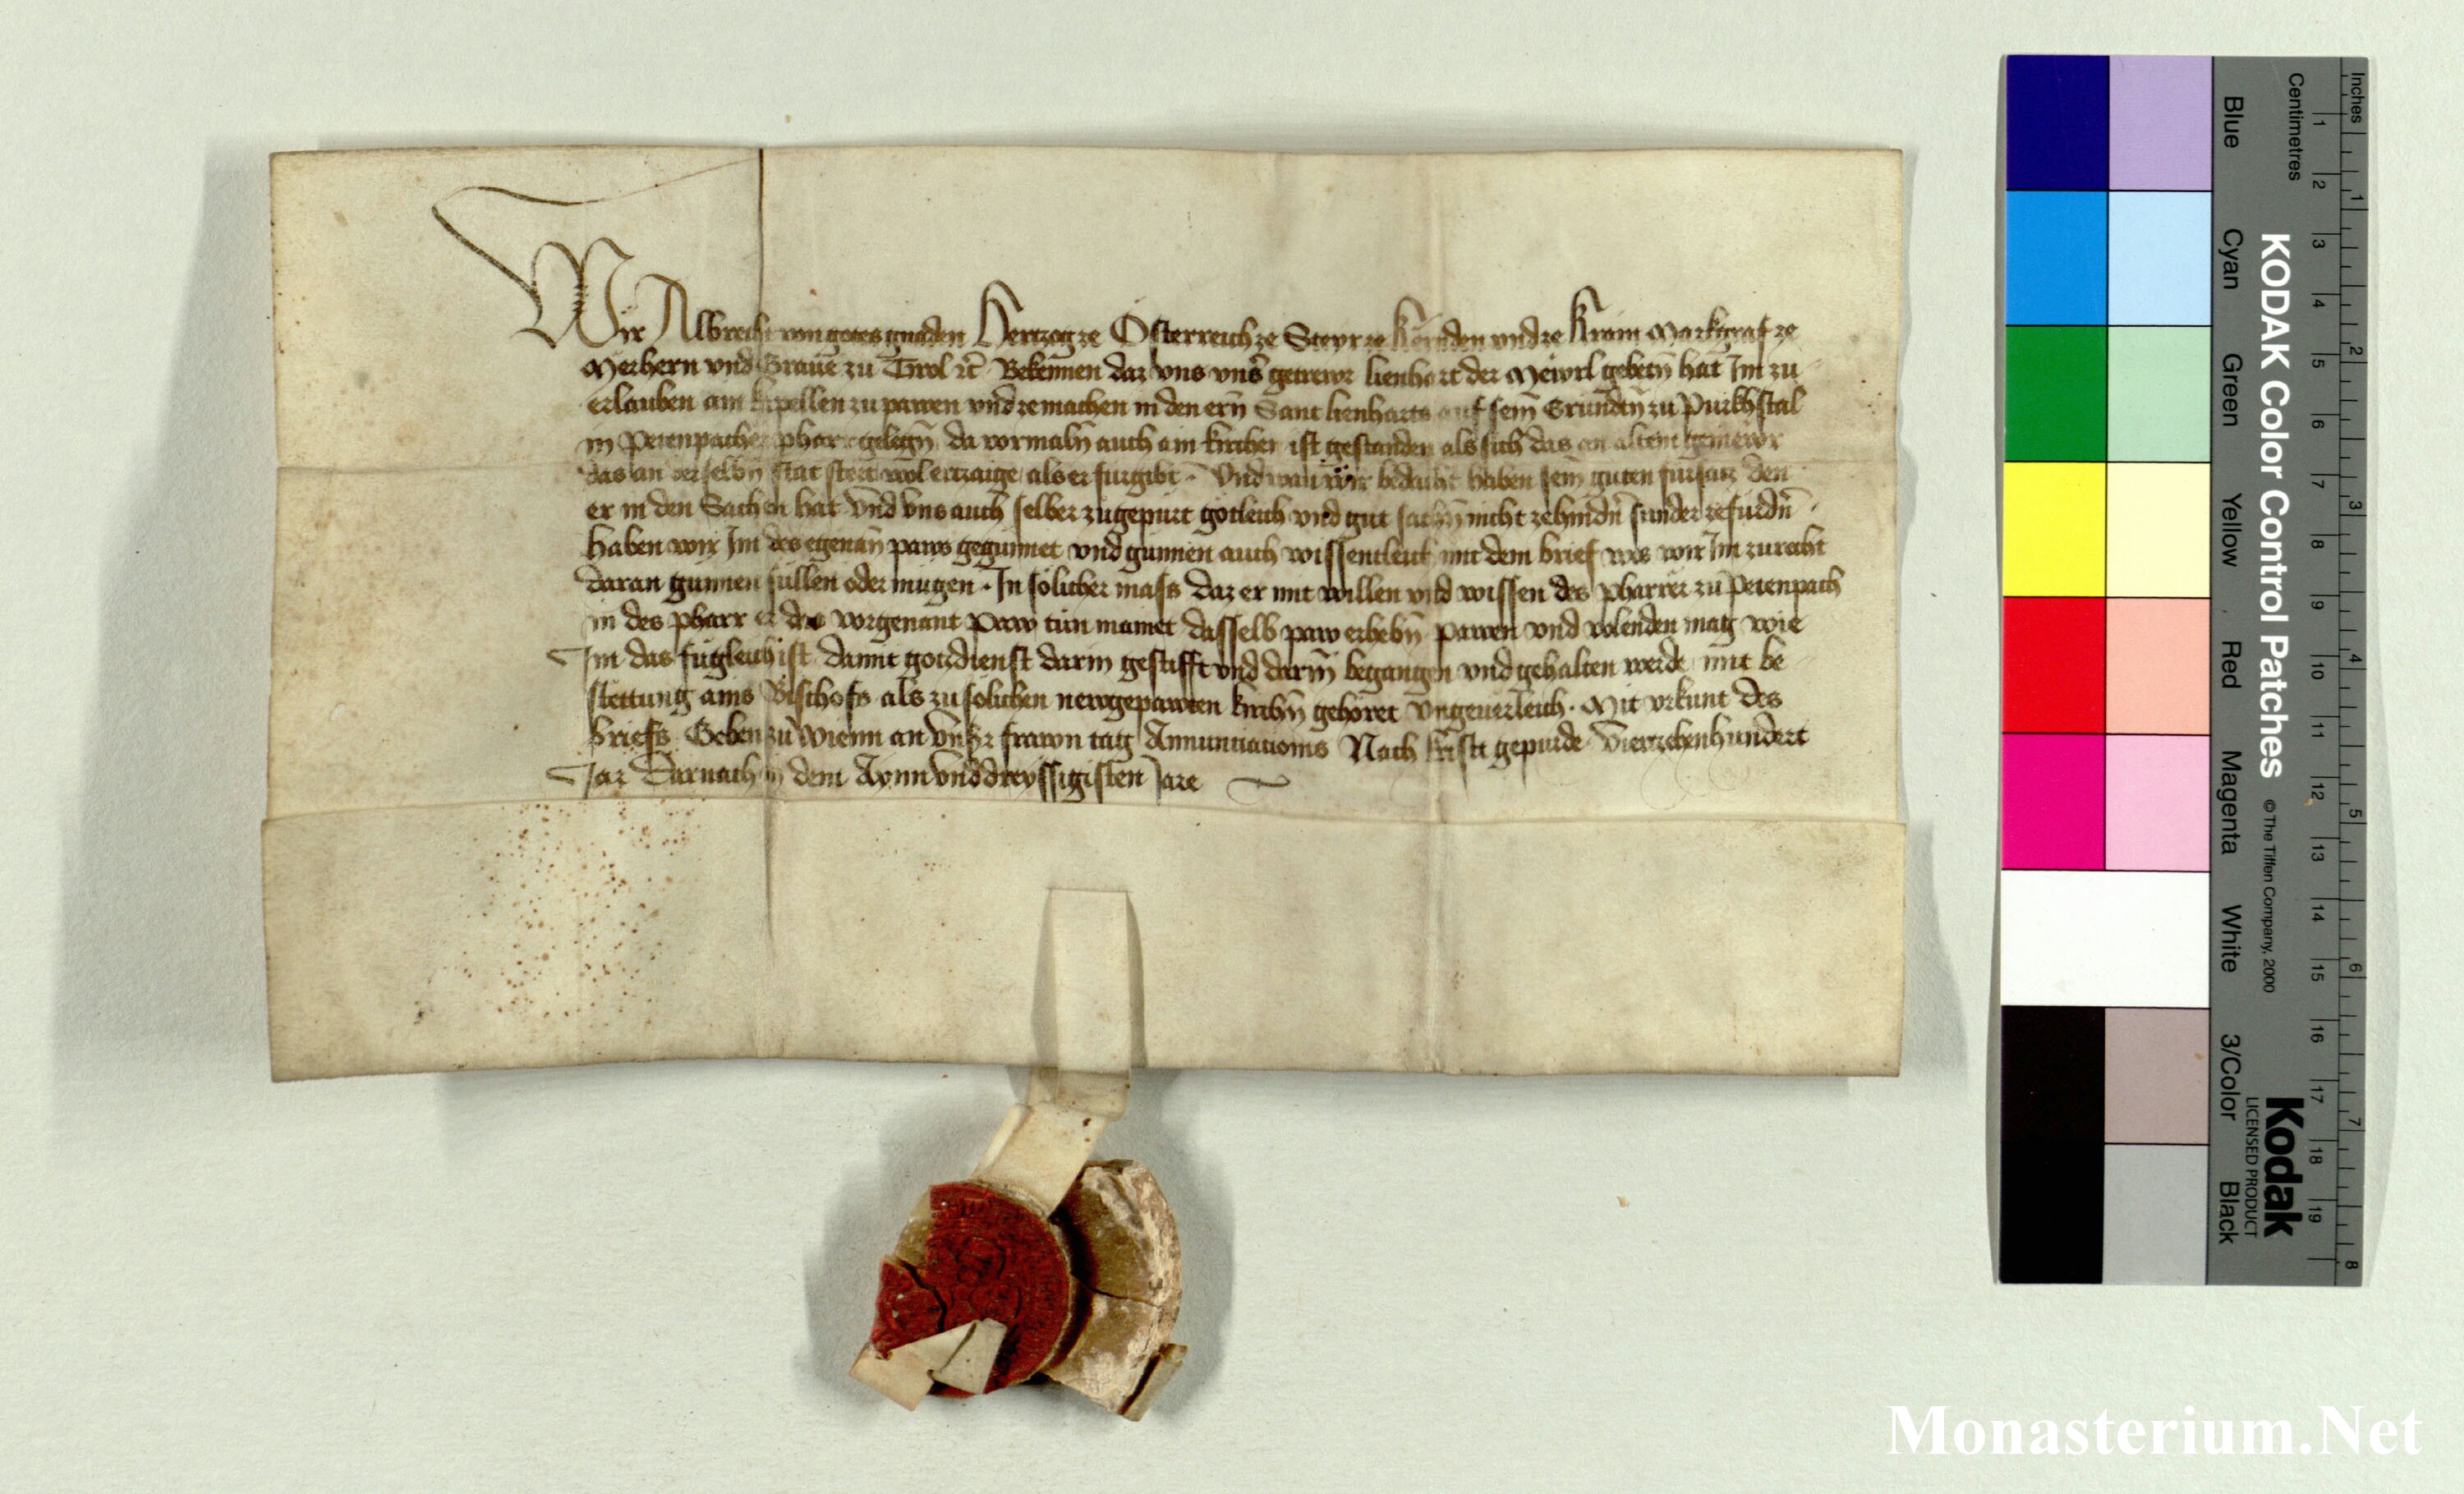 Wir Albrecht von gotes gnaden Hertzog ze Österreich ze Steyr ze Kernden vnd ze Krain Markgraf ze
Merhern vnd Graue zu Tirol etc Bekennen daz vns vnser getrewr lienhart der Mewrl gebetn̄ hat Im zu
erlauben ain kapellen zu pawen vnd ze machen in den ern̄ Sant lienharts auf sein Grundtn̄ zu Purkhstal
in Petenpacher pharr gelegn̄ da vormaln̄ auch ain kirchen ist gestanden als sich das an altem gemewr
das an derselbn̄ stat stett wol ertzaige als er furgibt. Vnd wan wir bedacht haben sein guten fürsatz den
er in den Sachen hat vnd vns auch selber zugepürt götleich vnd gut sachn̄ nicht ze hindn̄ sunder ze fürdn̄
haben wir Im des egenan̄ paws gegunnet vnd gunnen auch wissentleich mit dem brief was wir Im zu recht
daran gunnen süllen oder mügen. In sölicher mass daz er mit willen vnd wissen des pharrer zu Petenpach
in des pharr er das vorgenant paw tun mainet dasselb paw erhebn̄ pawen vnd volenden mag wie
Im das fügleich ist damit gotzdienst darin gestifft vnd darin̄ begangen vnd gehalten werde mit be
stettung ains Bischofs als zu solichen newgepawten kirchn̄ gehöret vngeuerleich. Mit vrkunt des
briefs Geben zu Wienn an vnsr frawn tag Annunciationis Nach kristi gepurde Vierzehenhundert
Jar Darnach in dem Aynn vnd dreyssigisten Jare
KODAK Color Control Patches
© The Tiffen Company, 2000
Kodak
LICENSED PRODUCT
Inches
1 2 3 4 5 6 7 8
Centimetres
1 2 3 4 5 6 7 8 9 10 11 12 13 14 15 16 17 18 19
Blue Cyan Green Yellow Red Magenta White 3/Color Black
Monasterium.Net